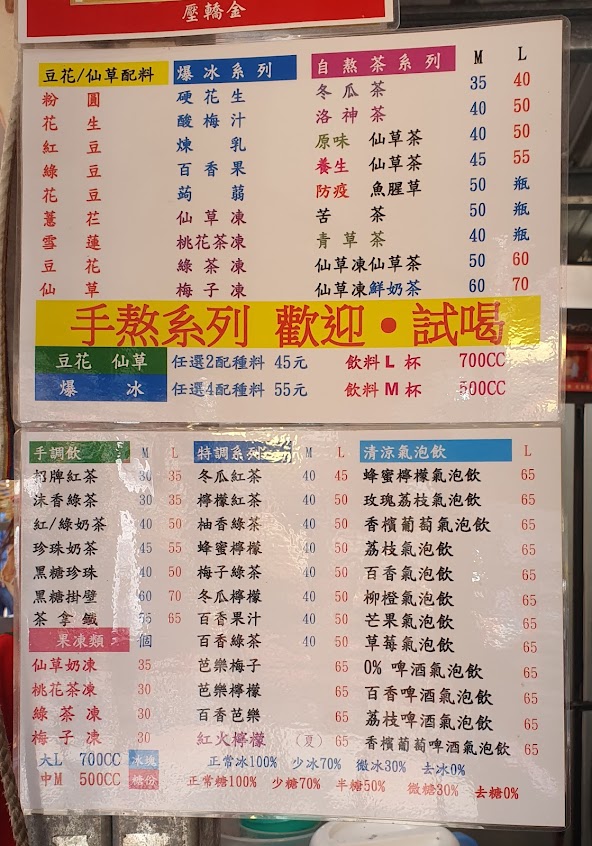 金轎壓
豆花/仙草配料
粉圓
花生
紅豆
綠豆
花豆
薏芢
雪蓮
豆花
仙草
爆冰系列
硬花生
酸梅汁
煉乳
百香果
蒟蒻
仙草凍
桃花茶凍
綠茶凍
梅子凍
自熬茶系列 M L
冬瓜茶 35 40
洛神茶 40 50
原味 仙草茶 40 50
養生 仙草茶 45 55
防疫 魚腥草 50 瓶
苦茶 50 瓶
青草茶 40 瓶
仙草凍仙草茶 50 60
仙草凍鮮奶茶 60 70
手熬系列 歡迎•試喝
豆花 仙草 任選2配種料 45元 飲料L 杯 700CC
爆 冰 任選4配種料 55元 飲料M 杯 500CC
手調飲 M L
招牌紅茶 30 35
沫香綠茶 30 35
紅/綠奶茶 40 50
珍珠奶茶 45 55
黑糖珍珠 40 50
黑糖掛壁 60 70
茶拿鐵 55 65
果凍類 個
仙草奶凍 35
桃花茶凍 30
綠茶凍 30
梅子凍 30
大L 700CC 冰塊
中M 500CC 糖份
特調系列 M L
冬瓜紅茶 40 45
檸檬紅茶 40 50
柚香綠茶 40 50
蜂蜜檸檬 40 50
梅子綠茶 40 50
冬瓜檸檬 40 50
百香果汁 40 50
百香綠茶 40 50
芭樂梅子 65
芭樂檸檬 65
百香芭樂 65
紅火檸檬 (夏) 65
清涼氣泡飲 L
蜂蜜檸檬氣泡飲 65
玫瑰荔枝氣泡飲 65
香檳葡萄氣泡飲 65
荔枝氣泡飲 65
百香氣泡飲 65
柳橙氣泡飲 65
芒果氣泡飲 65
草莓氣泡飲 65
0% 啤酒氣泡飲 65
百香啤酒氣泡飲 65
荔枝啤酒氣泡飲 65
香檳葡萄啤酒氣泡飲 65
正常冰100% 少冰70% 微冰30% 去冰0%
正常糖100% 少糖70% 半糖50% 微糖30% 去糖0%